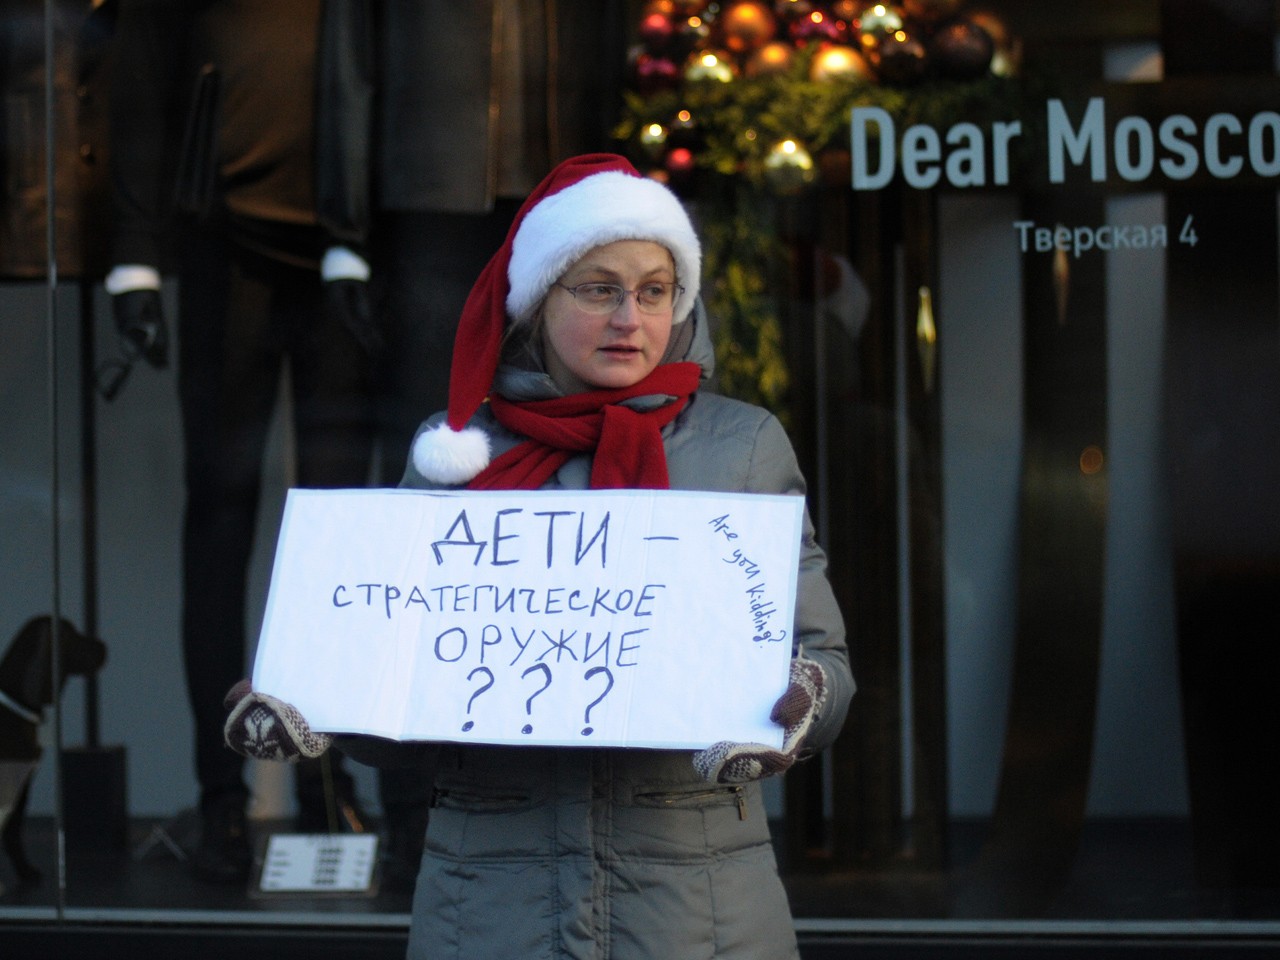 Dear Mosco
Тверская 4
ДЕТИ –
СТРАТЕГИЧЕСКОЕ
ОРУЖИЕ
? ? ?
Are you kidding?